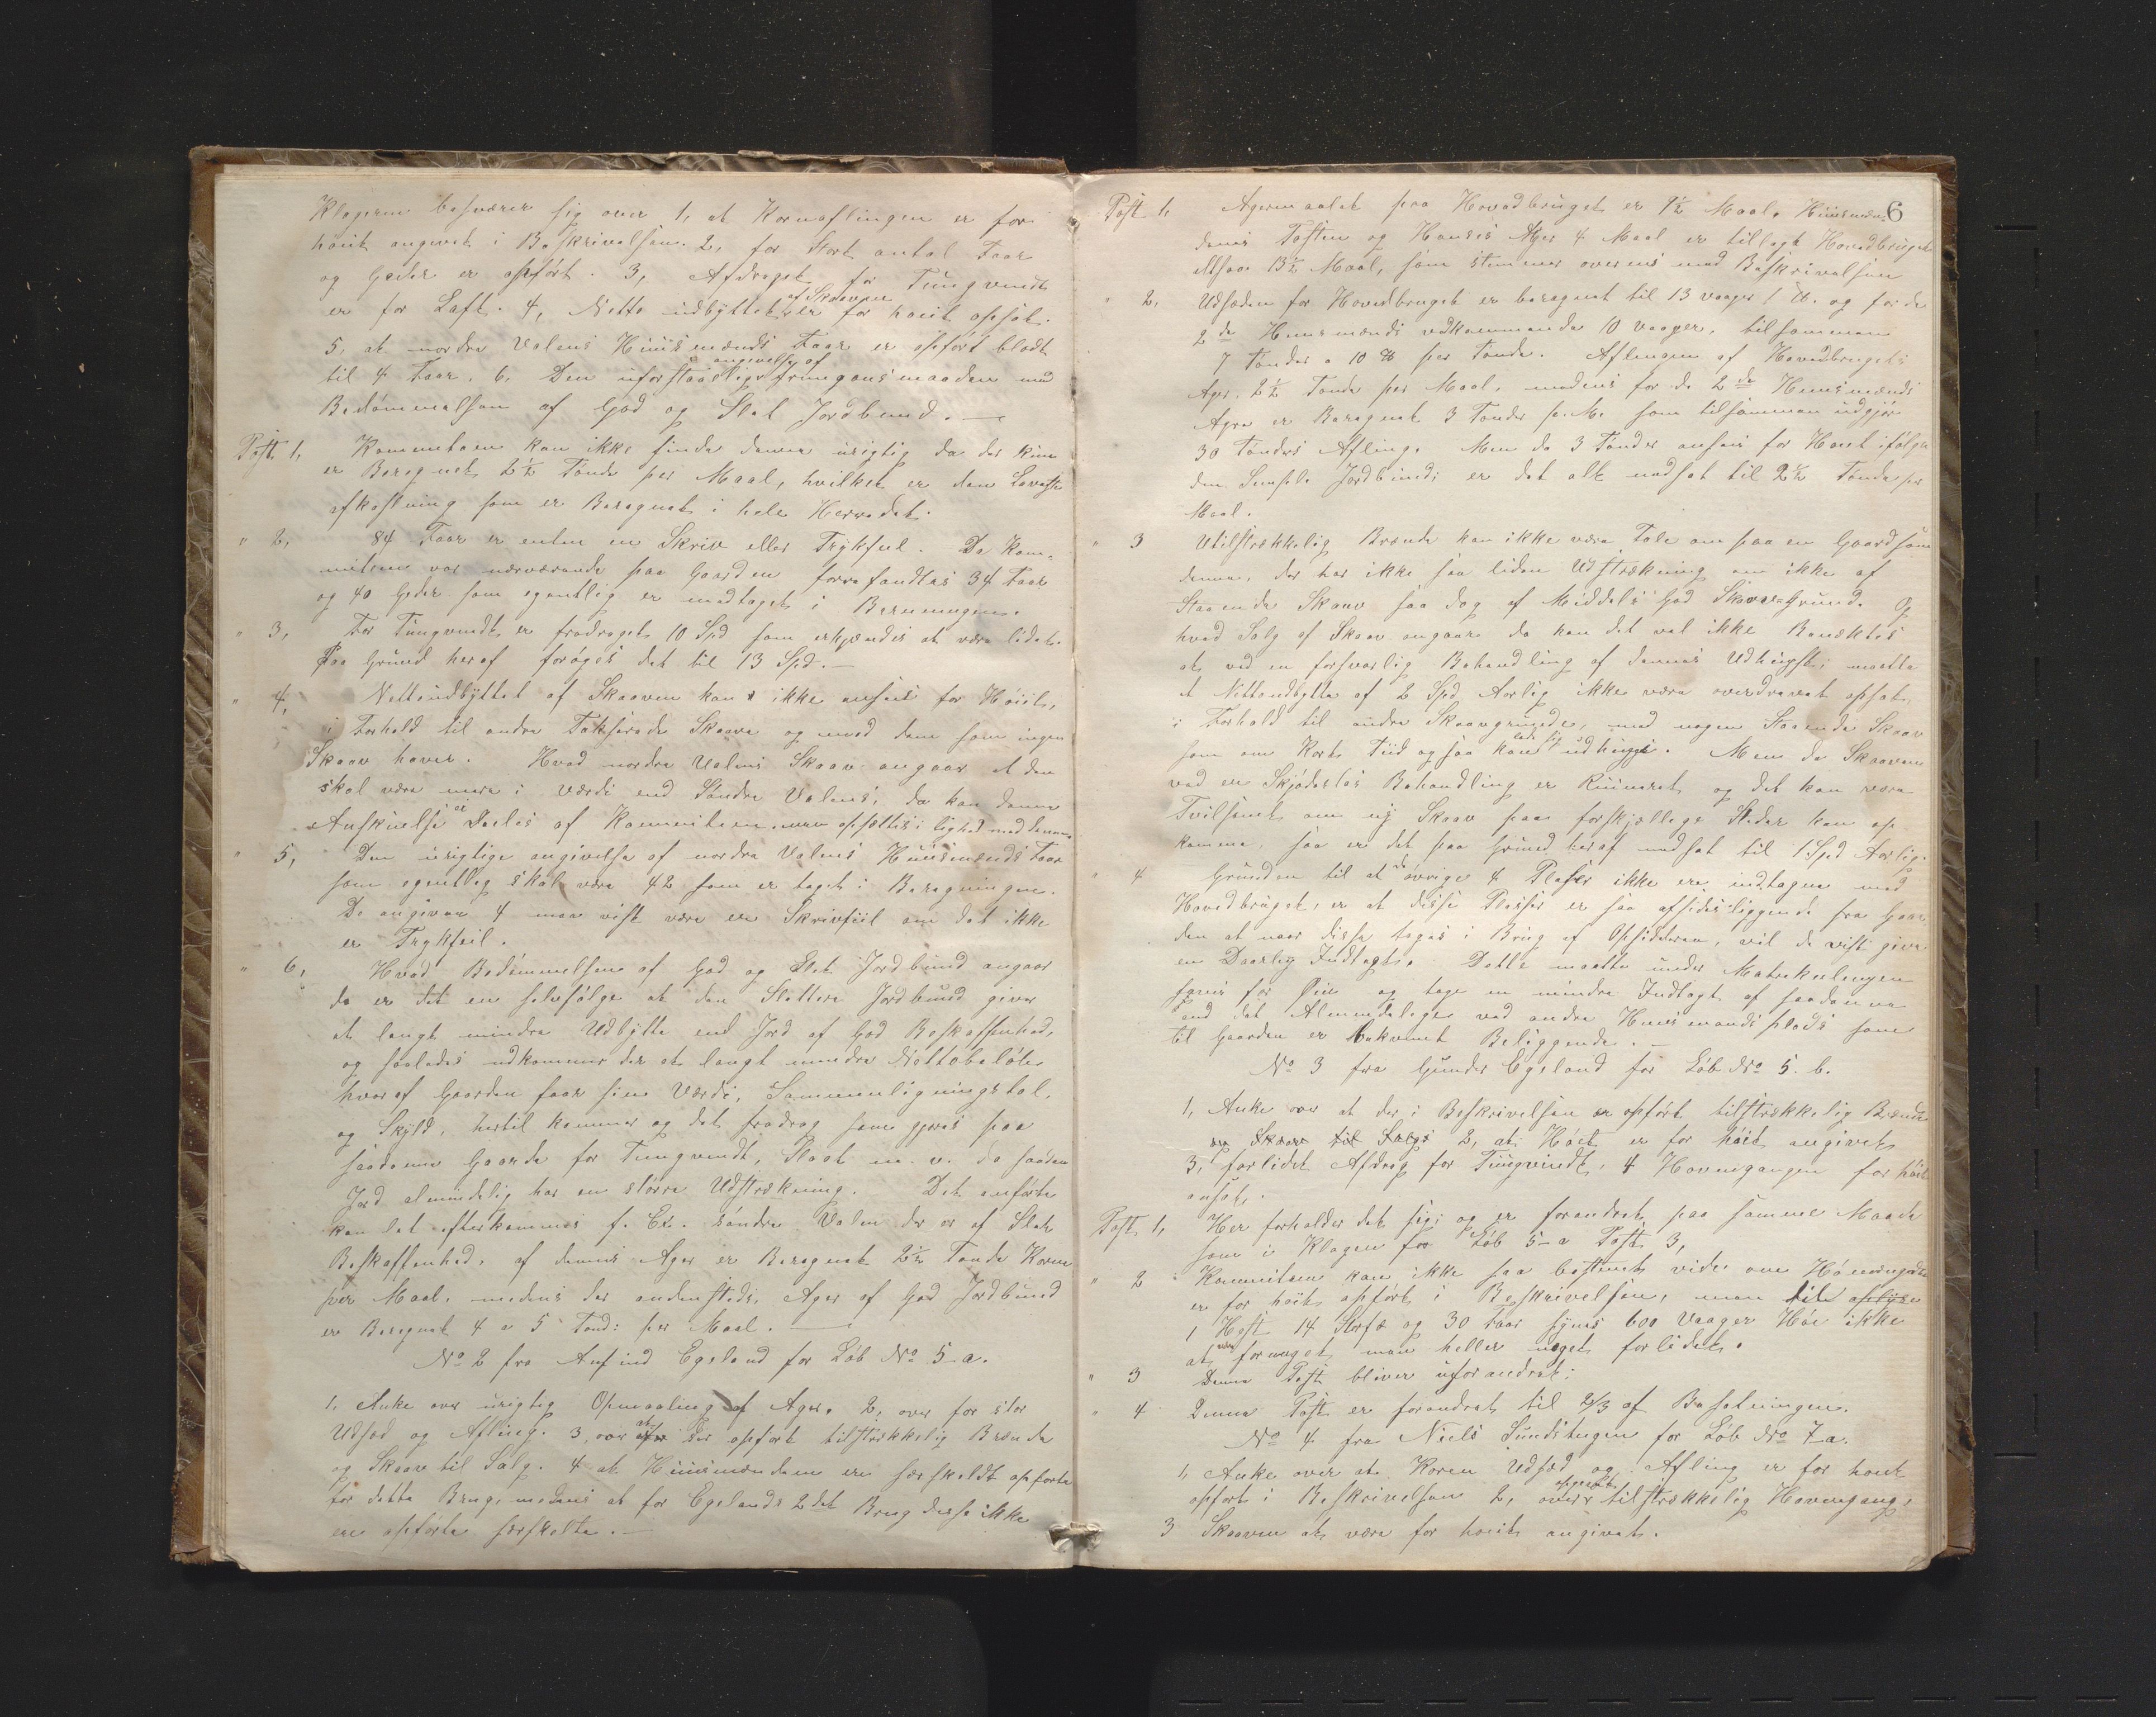 Klageren besværer sig over 1, at Kornaflingen er for
höit angivet i Beskrivelsen. 2, for Stort antal Faar
og Geder er opført. 3, Afdraget for Tungvindt
er for Laft. 4, Netto udbyttet af Skoven er for høit opsat.
5, at nordre Valens Huusmænds Faar er opført blodt
til 4 Faar. 6, Den uforstaaelige angivelse af fremgansmaaden med
Bedømmelsen af God og Slet Jordbund. —
Post 1, Kommiteen kan ikke finde denne urigtig da der kun
er Beregnet 2½ Tønde per Maal, hvilket er den Laveste
afkastning som er Beregnet i hele Herredet.
" 2, 84 Faar er enten en Skriv eller Trykfeil. Da Kom-
miteen var nærværende paa Gaarden forefandtes 34 Faar
og 40 Geder som egentlig er medtaget i Beregningen.
" 3, For Tungvindt er fradraget 10 Spd som erkjændes at være lidet.
Paa Grund heraf forøges det til 13 Spd. —
" 4, Nettoudbyttet af Skoven kan ikke ansees for Høiit,
i Forhold til andre Takserede Skove og med dem som ingen
Skaav haver. Hvad nordre Valens Skaav angaar at den
skal være mere i Værdi end Søndre Valens, da kan denne
Anskuelse ei Deeles af Kommiteen men opsættes i lighed med denne.
" 5, Den urigtige angivelse af nordre Valens Huusmænds Faar
som egentlig skal være 42 som er taget i Beregningen.
De angivne 4 maa vist være en Skrivfeil om det ikke
er Trykfeil.
" 6, Hvad Bedømmelsen af God og Slet Jordbund angaar
da er det en selvfølge at den Slettere Jordbund giver
et langt mindre Udbytte end Jord af God Beskaffenhed,
og saaledes udkommer der et langt mindre Nettobeløb
hvoraf Gaarden faar sin Værdi, Sammenligningstal,
og Skyld, hertil kommer og det fradrag som gjøres paa
saadanne Gaarde for Tungvindt, Slaat m. v. da saadan
Jord almindelig har en større Udstrækning. Det anførte
kan let efterkommes f. Ex. søndre Valen der er af Slet
Beskaffenhed, af dennes Ager er Beregnet 2½ Tønde Korn
per Maal, medens der andensteds, Ager af God Jordbund
er Beregnet 4 a 5 Tønd: per Maal. —
No 2 fra Anfind Egeland for Løb No 5-a.
1, Anke over urigtig Opmaaling af Ager. 2, over for stor
Udsæd og Afling. 3, over at der opført tilstrækkelig Brænde
og Skaav til Salg. 4 at Huusmændene ere særskeldt opførte
for dette Brug, medens at for Egelands 2det Brug disse ikke
ere opførte særskelte. —
6
Post 1, Agermaalet paa Hovedbruget er 9½ Maal. Huusmæn
denes Tosten og Hanses Ager 4 Maal er tillagt Hovedbruget
altsaa 13½ Maal, som stemmer overens med Beskrivelsen
" 2, Udsæden for Hovedbruget er beregnet til 13 vaager 1 ℔. og for de
2de Huusmænds vedkommende 10 Vaager, tilsammen
7 Tønder a 10 ℔ per Tønde. Aflingen af Hovedbrugets
Ager 2½ Tønde per Maal, medens for de 2de Huusmænds
Agre er Beregnet 3 Tønder p. M. som tilsammen udgjør
30 Tønders Afling. Men da 3 Tønder ansees for Høit ifølge
den Simple Jordbund, er det alt nedsat til 2½ Tønde per
Maal.
" 3 Utilstrækkelig Brænde kan ikke være Tale om paa en Gaard som
denne, der har ikke saa liden Udstrækning om ikke af
Staaende Skaav saa dog af Middels God Skaav-Grund. Og
hvad Salg af Skaav angaar da kan det vel ikke Benektes
at ved en forsvarlig Behandling af dennes Udhugst, maatte
et Nettoudbytte af 2 Spd Aarlig ikke være overdrevet opsat
i Forhold til andre Skaavgrunde, med nogen Staaende Skaav
som om Kort Tiid ogsaa kan lade sig udhugge. Men da Skaaven
ved en Skjødesløs Behandling er Ruineret, og det kan være
Tvilsomt om ny Skaav paa forskjellige Steder kan op-
komme, saa er det paa Grund heraf nedsat til 1 Spd Aarlig.
" 4 Grunden til at de øvrige 4 Pladser ikke ere indtagne med
Hovedbruget, er at disse Pladser er saa afsides liggende fra Gaar
den at naar disse toges i Brug af Opsidderen, vil de vist give
en Daarlig Indtægt. Dette maatte under Matrikulingen
haves for Øie og tage en mindre Indtægt af saadanne
end det Almindelige ved andre Huusmandsplads som
til Gaarden er bekvemt Beliggende. —
No 3 fra Gunder Egeland for Løb No 5. b.
1, Anke over at der i Beskrivelsen er opført tilstrækkelig Brænde
og Skaav til Salg. 2, at Høet er for høit angivet
3, forlidet Afdrag for Tungvindt, 4 Havnegangen for høit
ansat.
Post 1, Her forholder det sig og er forandret paa samme Maade
som i Klagen for Løb 5-a Post 3,
" 2 Kommiteen kan ikke saa bestemt vide om Høemængden
er for høit opført i Beskrivelsen, men til oplyse
1 Hest 14 Storfæ og 30 Faar synes 600 Vaager Høe ikke
at være formeget men heller noget forlidet.
" 3 Denne Post bliver uforandret.
" 4 Denne Post er forandret til 2/3 af Besætningen.
No 4 fra Niels Sundstugen for Løb No 7-a.
1, Anke over at Koren Udsæd og Afling er for høit
opført i Beskrivelsen 2, over opgivet tilstrækkelig Havnegang,
3 Skaaven at være for høit angivet.